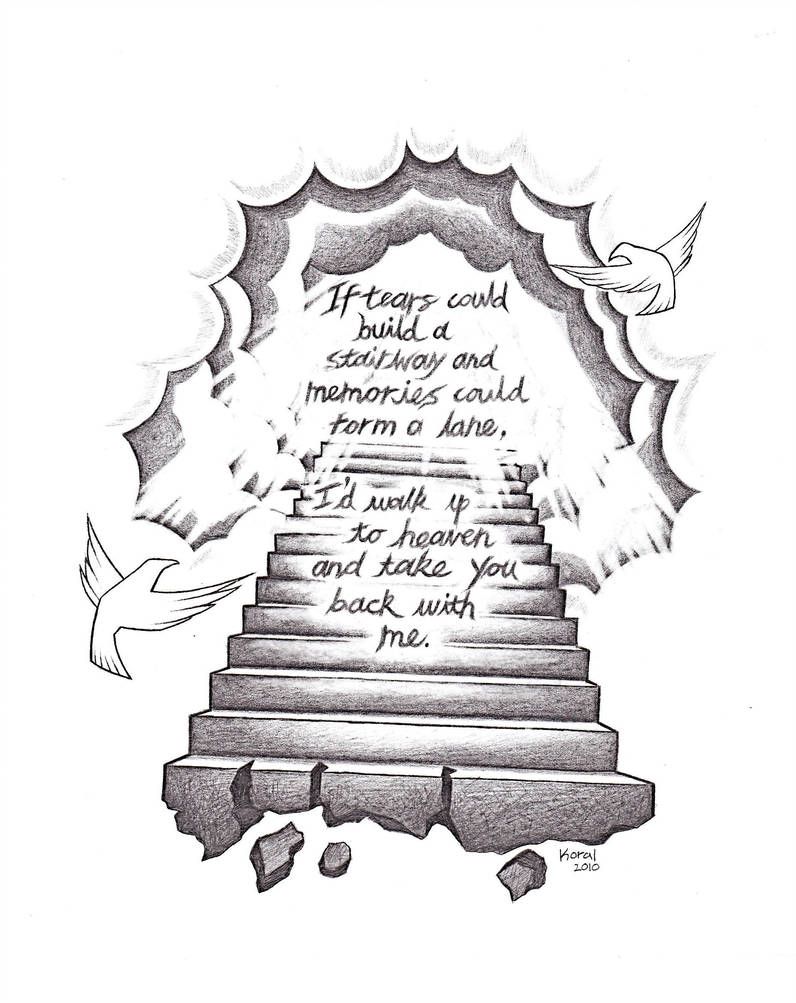 If tears could
build a
stairway and
memories could
form a lane,
I'd walk up
to heaven
and take you
back with
me.
Koral
2010